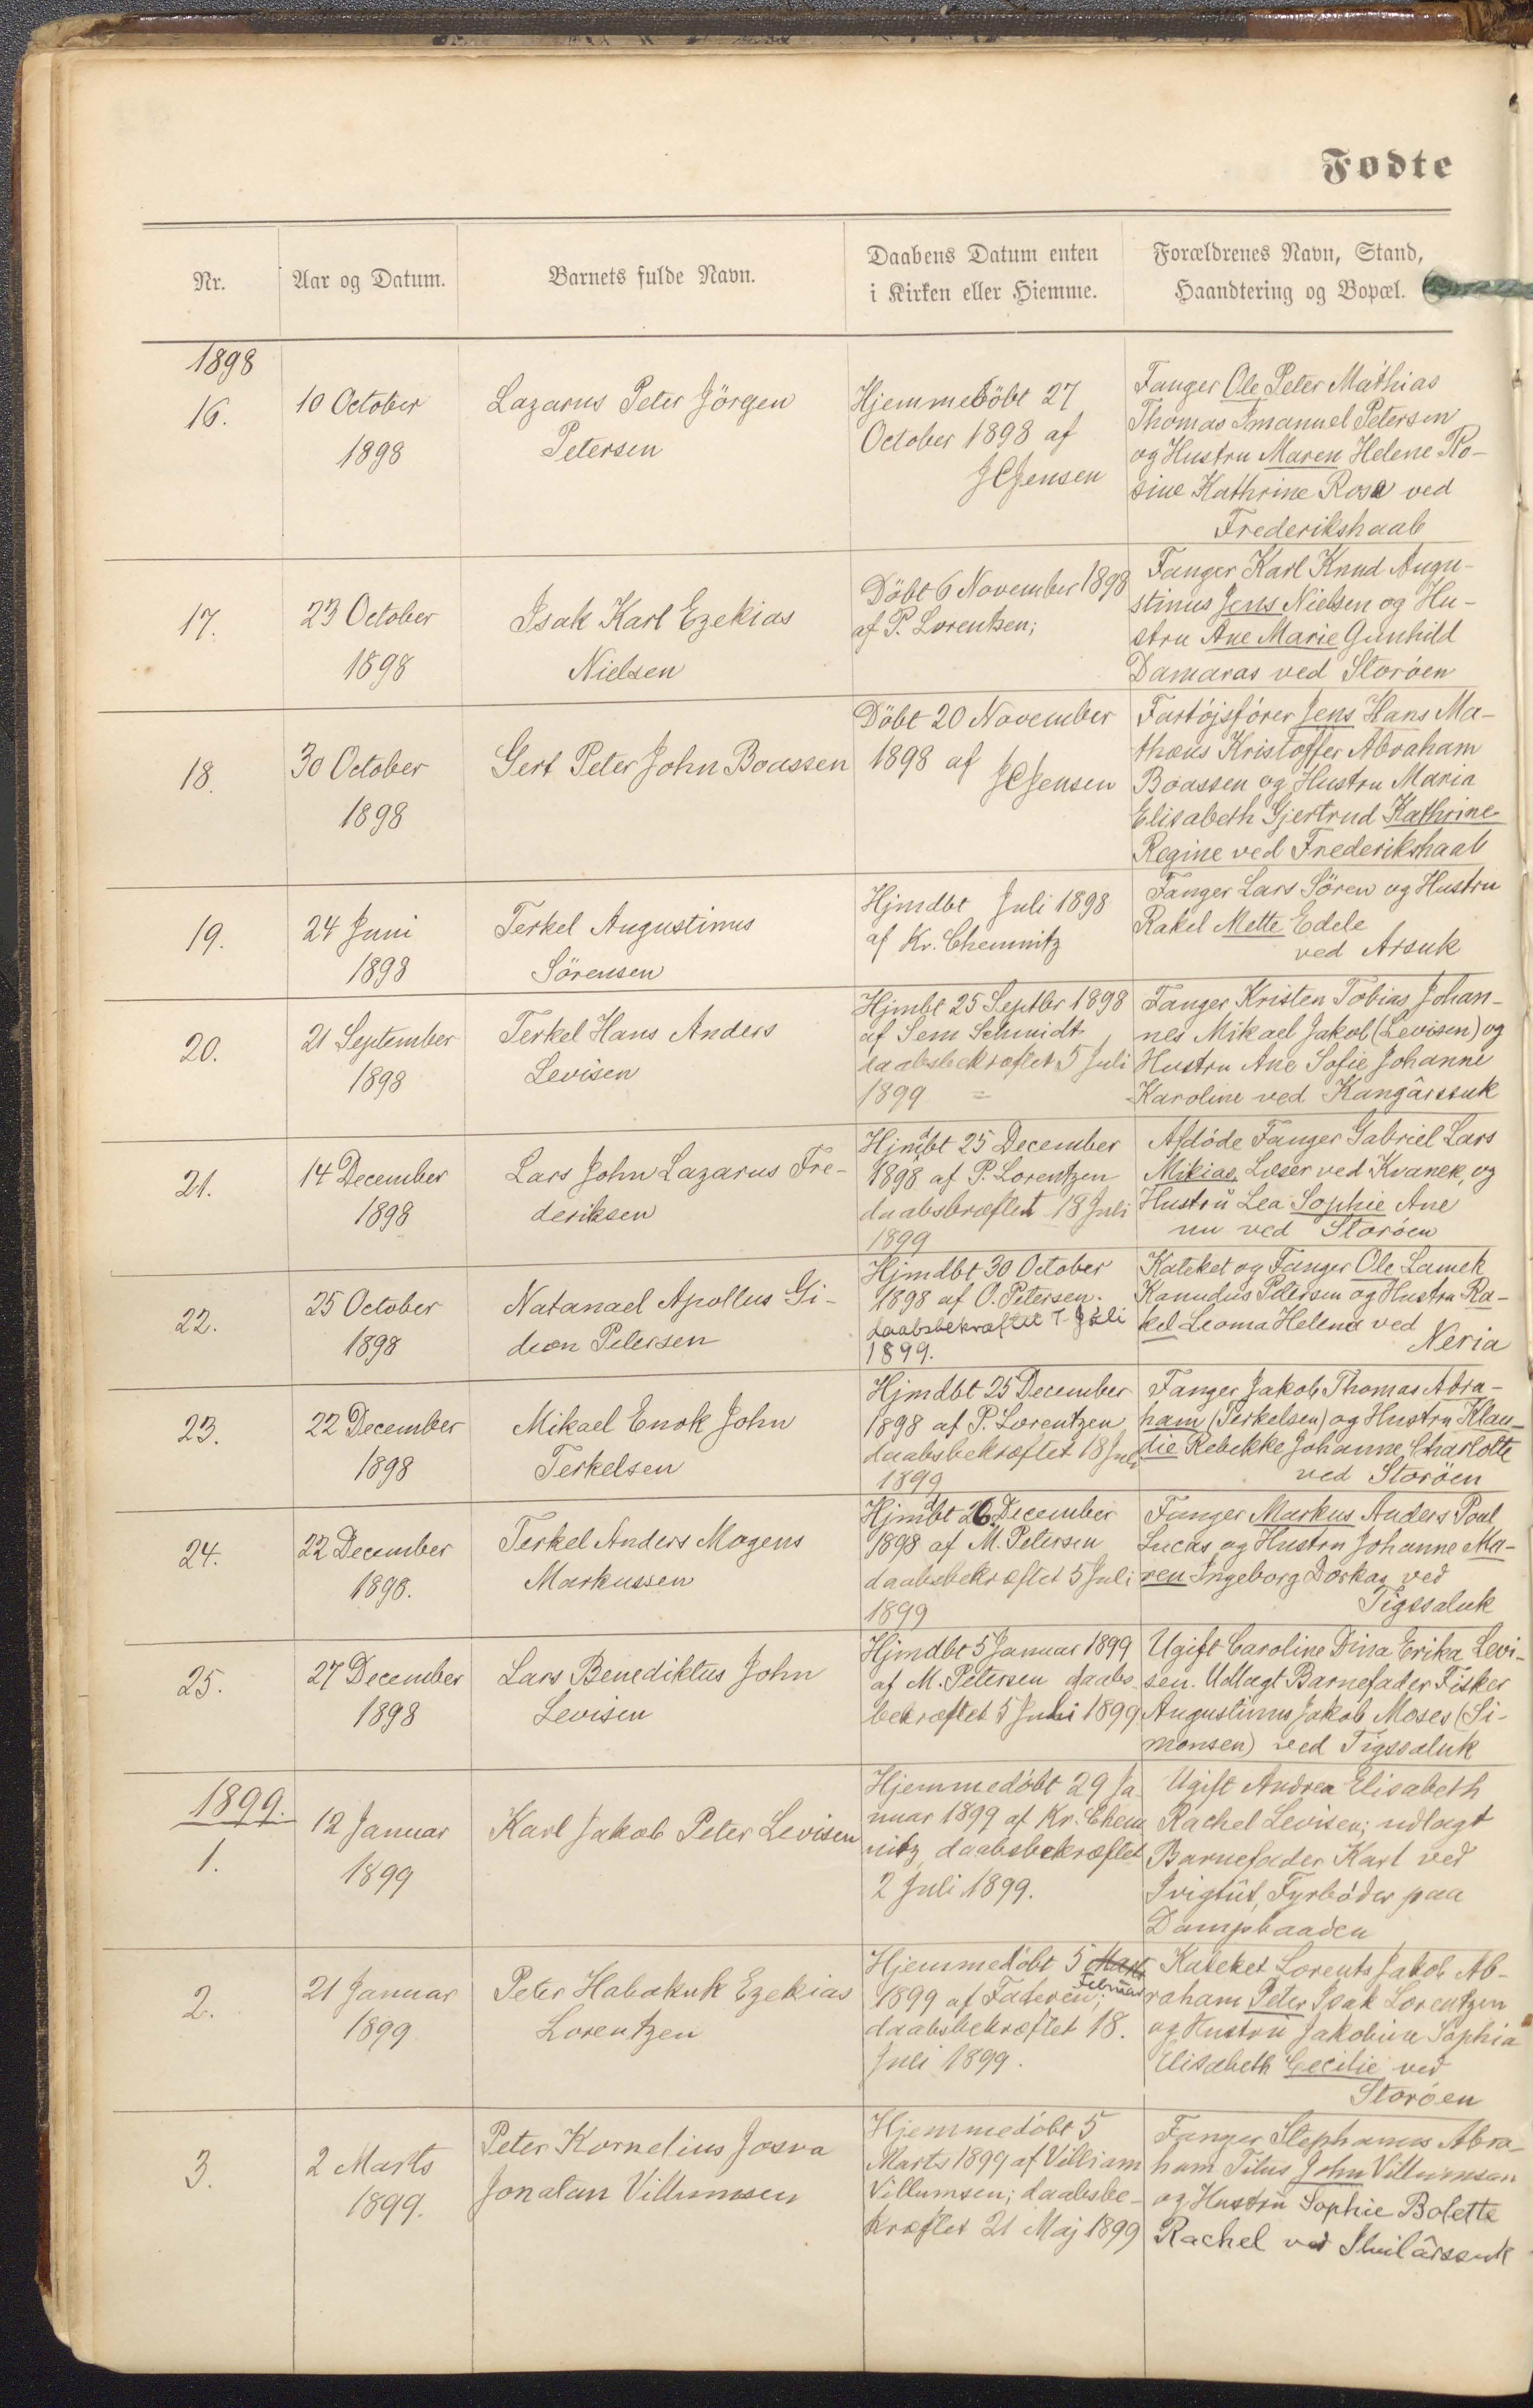 Fødte
Nr.
Aar og Datum.
Barnets fulde Navn.
Daabens Datum enten
i Kirken eller Hiemme.
Forældrenes Navn, Stand,
Haandtering og Bopæl.
1898
16.
10 October
1898
Lazarus Peter Jörgen
Petersen
Hjemmedöbt 27
October 1898 af
JCJensen
Fanger Ole Peter Mathias
Thomas Imanuel Petersen
og Hustru Maren Helene Ro-
sine Kathrine Rosa ved
Frederikshaab
17.
23 October
1898
Isak Karl Ezekias
Nielsen
Döbt 6 November 1898
af P. Lorentzen;
Fanger Karl Knud Augu-
stinus Jens Nielsen og Hu-
stru Ane Marie Gunhild
Damaras ved Storöen
18.
30 October
1898
Gert Peter John Boassen
Döbt 20 November
1898 af
JCJensen
Fartöjsförer Jens Hans Ma-
thæus Kristoffer Abraham
Boassen og Hustru Maria
Elisabeth Gjertrud Kathrine
Regine ved Frederikshaab
19.
24 Juni
1898
Terkel Augustinus
Sörensen
Hjmdbt Juli 1898
af Kr. Chemnitz
Fanger Lars Sören og Hustru
Rakel Mette Edele
ved Arsuk
20.
21 September
1898
Terkel Hans Anders
Levisen
Hjmbt 25 Septbr 1898
af Sem Schmidt,
daabsbekræftet 5 Juli
1899 =
Fanger Kristen Tobias Johan-
nes Mikael Jakob (Levisen) og
Hustru Ane Sofie Johanne
Karoline ved Kangârssuk
21.
14 December
1898
Lars John Lazarus Fre-
deriksen
Hjmdbt 25 December
1898 af P. Lorentzen
daabsbræftet 18 Juli
1899
Afdöde Fanger Gabriel Lars
Mikias, Læser ved Kvanek, og
Hustru Lea Sophie Ane
nu ved Storöen
22.
25 October
1898
Natanael Apollus Gi-
deon Petersen
Hjmdbt 30 October
1898 af O. Petersen.
daabsbekræftet 7 Juli
1899.
Kateket og Fanger Ole Lamek
Kanudus Petersen og Hustru Ra-
kel Leoma Helena ved
Neria
23.
22 December
1898
Mikael Enok John
Terkelsen
Hjmdbt 25 December
1898 af P. Lorentzen
daabsbekræftet 18 Juli
1899
Fanger Jakob Thomas Abra-
ham (Terkelsen) og Hustru Klau-
die Rebekke Johanne Charlotte
ved Storöen
24.
22 December
1898.
Terkel Anders Mogens
Markussen
Hjmdbt 26 December
1898 af M. Petersen
daabsbekræftet 5 Juli
1899
Fanger Markus Anders Poul
Lucas og Hustru Johanne Ma-
ren Ingeborg Dorkas ved
Tigssaluk
25.
27 December
1898
Lars Benediktus John
Levisen
Hjmdbt 5 Januar 1899
af M. Petersen daabs-
bekræftet 5 Juli 1899
Ugift Caroline Dina Erika Levi-
sen. Udlagt Barnefader Fisker
Augustinus Jakob Moses (Si-
monsen) ved Tigssaluk
1899.
1.
12 Januar
1899
Karl Jakob Peter Levisen
Hjemmedöbt 29 Ja-
nuar 1899 af Kr. Chem
nitz, daabsbekræftet
2 Juli 1899.
Ugift Andrea Elisabeth
Rachel Levisen; udlagt
Barnefader Karl ved
Ivigtût, Fyrböder paa
Dampbaaden
2.
21 Januar
1899
Peter Habakuk Ezekias
Lorentzen
Hjemmedöbt 5 Marts
Februar
1899 af Faderen;
daabsbekræftet 18.
Juli 1899.
Kateket Lorents Jakob Ab-
raham Peter Isak Lorentzen
og Hustru Jakobine Sophia
Elisabeth Cecilie ved
Storöen
3.
2 Marts
1899.
Peter Kornelius Josva
Jonatan Villumsen
Hjemmedöbt 5
Marts 1899 af Villiam
Villumsen; daabsbe-
kræftet 21 Maj 1899
Fanger Stephanus Abra-
ham Titus John Villumsen
og Hustru Sophie Bolette
Rachel ved